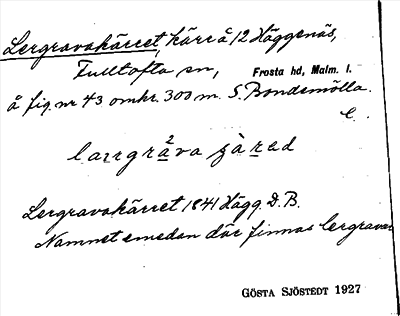 Lergravakärret, kärr å 12 Häggenäs,
Fulltofta sn, Frosta hd, Malm. l.
å fig. nr 43 omkr. 300 m. S. Bondemölla.
l.
Lergravakärret 1841 Hägg. D.B.
Namnet emedan där finnas lergravar
GÖSTA SJÖSTEDT 1927